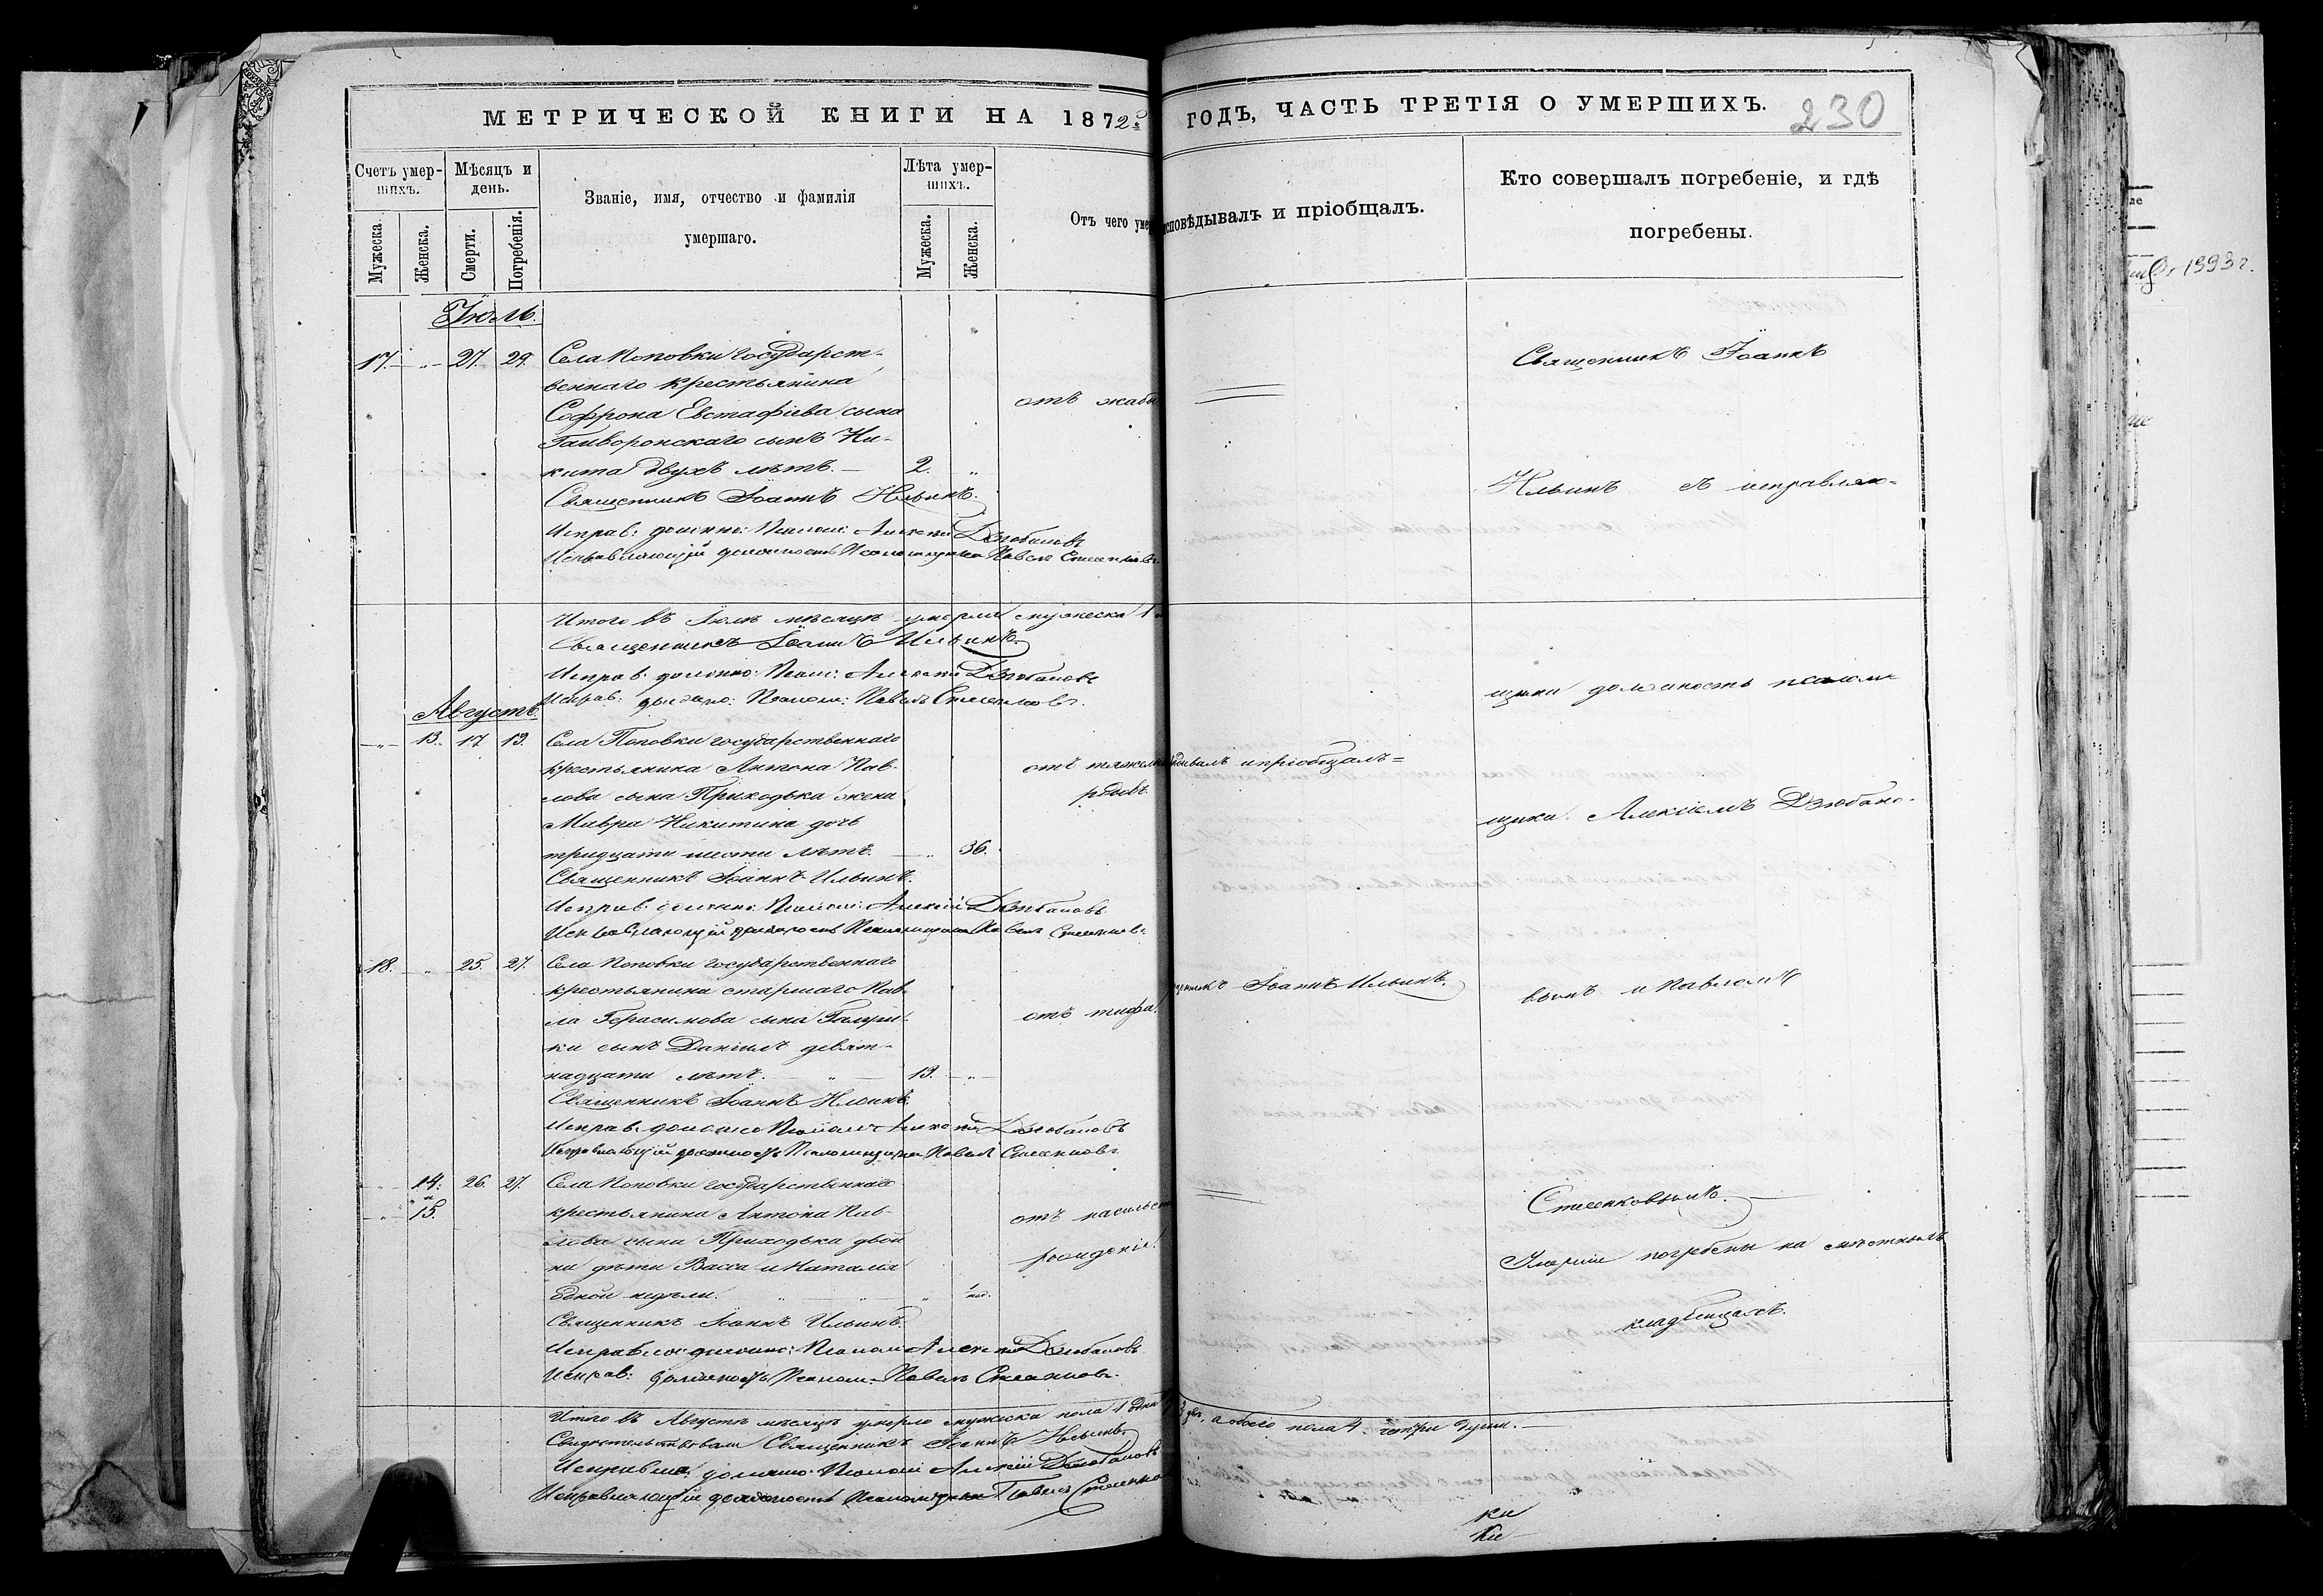 МЕТРИЧЕСКОЙ КНИГИ НА 1872й ГОДЪ, ЧАСТЬ ТРЕТІЯ О УМЕРШИХЪ. 230
Счетъ умер-
шихъ.
Мужеска.
Женска.
Мѣсяцъ и
день.
Смерти.
Погребенія.
Званіе, имя, отчество и фамилія
умершаго.
Лѣта умер-
шихъ.
Мужеска.
Женска.
Отъ чего уме
исповѣдывалъ и пріобщалъ.
Кто совершалъ погребеніе, и гдѣ
погребены.
Іюль.
17. " 27. 29. Села Поповки государст-
веннаго крестьянина
Софрона Евстафіева сына отъ жабы
Гайворонскаго сынъ Ни-
кита двухъ лѣтъ. 2. "
Священникъ Іоаннъ Ильинъ.
Исправ: должно: Псалом: Алексій Дзюбановъ
Исправляющій должность Псаломщика Павелъ
Итого въ Іюлѣ мѣсяцѣ умерло мужеска 1
Священникъ Іоаннъ Ильинъ.
Исправ: должно: Псал: Алексій Дзюбановъ
Исправ: должно: Псалом: Павелъ
Августъ.
" 13. 17 19. Села Поповки государственнаго
крестьянина Антона Пав- отъ тяжелы
лова сына Приходька жена родовъ.
Мавра Никитина дочь
тридцати шести лѣтъ. " 36.
Священникъ Іоаннъ Ильинъ.
Исправ: должно: Псалом: Алексій Дзюбановъ.
Исправляющій должность Псаломщика Павелъ
18. " 25. 27. Села Поповки государственнаго
крестьянина старшаго Пав-
ла Герасимова сына отъ тифа.
ки сынъ Даніилъ девят-
надцати лѣтъ. " 19. "
Священникъ Іоаннъ Ильинъ.
Исправ: должно: Псалом: Алексій Дзюбановъ
Исправляющій должность Псаломщика Павелъ
" 14. 26. 27. Села Поповки государственнаго
и
" 15. крестьянина Антона Пав- отъ насильст
лова сына Приходька двой- рожденія.
ни дѣти Васса и Наталія
одной недѣли. " нед.
Священникъ Іоаннъ Ильинъ.
Исправляю: должно: Псалом: Алексій Дзюбановъ
Исправ: должность Псалом: Павелъ
Итого въ Августѣ мѣсяцѣ умерло мужеска пола 1 одна а обоего пола 4 четыри души.
Свидѣтельствовали Священникъ Іоаннъ Ильинъ
Исправля: должно: Псалом: Алексій Дзюбановъ
Исправляющій должность Псаломщика Павелъ
дывалъ и пріобщалъ
щенникъ Іоаннъ Ильинъ.
Священникъ Іоаннъ
Ильинъ съ исправляю-
щими должность псалом-
щика Алексіемъ Дзюбано-
вымъ и Павломъ
погребены на мѣстномъ
кладбищахъ.